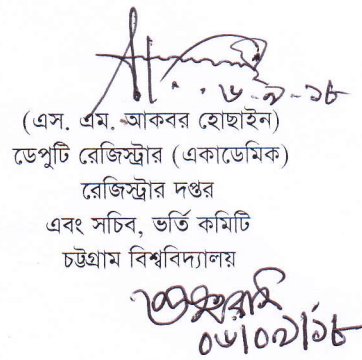 ৬-৯-১৮
(এস. এম. আকবর হোছাইন)
ডেপুটি রেজিস্ট্রার (একাডেমিক)
রেজিস্ট্রার দপ্তর
এবং সচিব, ভর্তি কমিটি
চট্টগ্রাম বিশ্ববিদ্যালয়
০৬/০৯/১৮